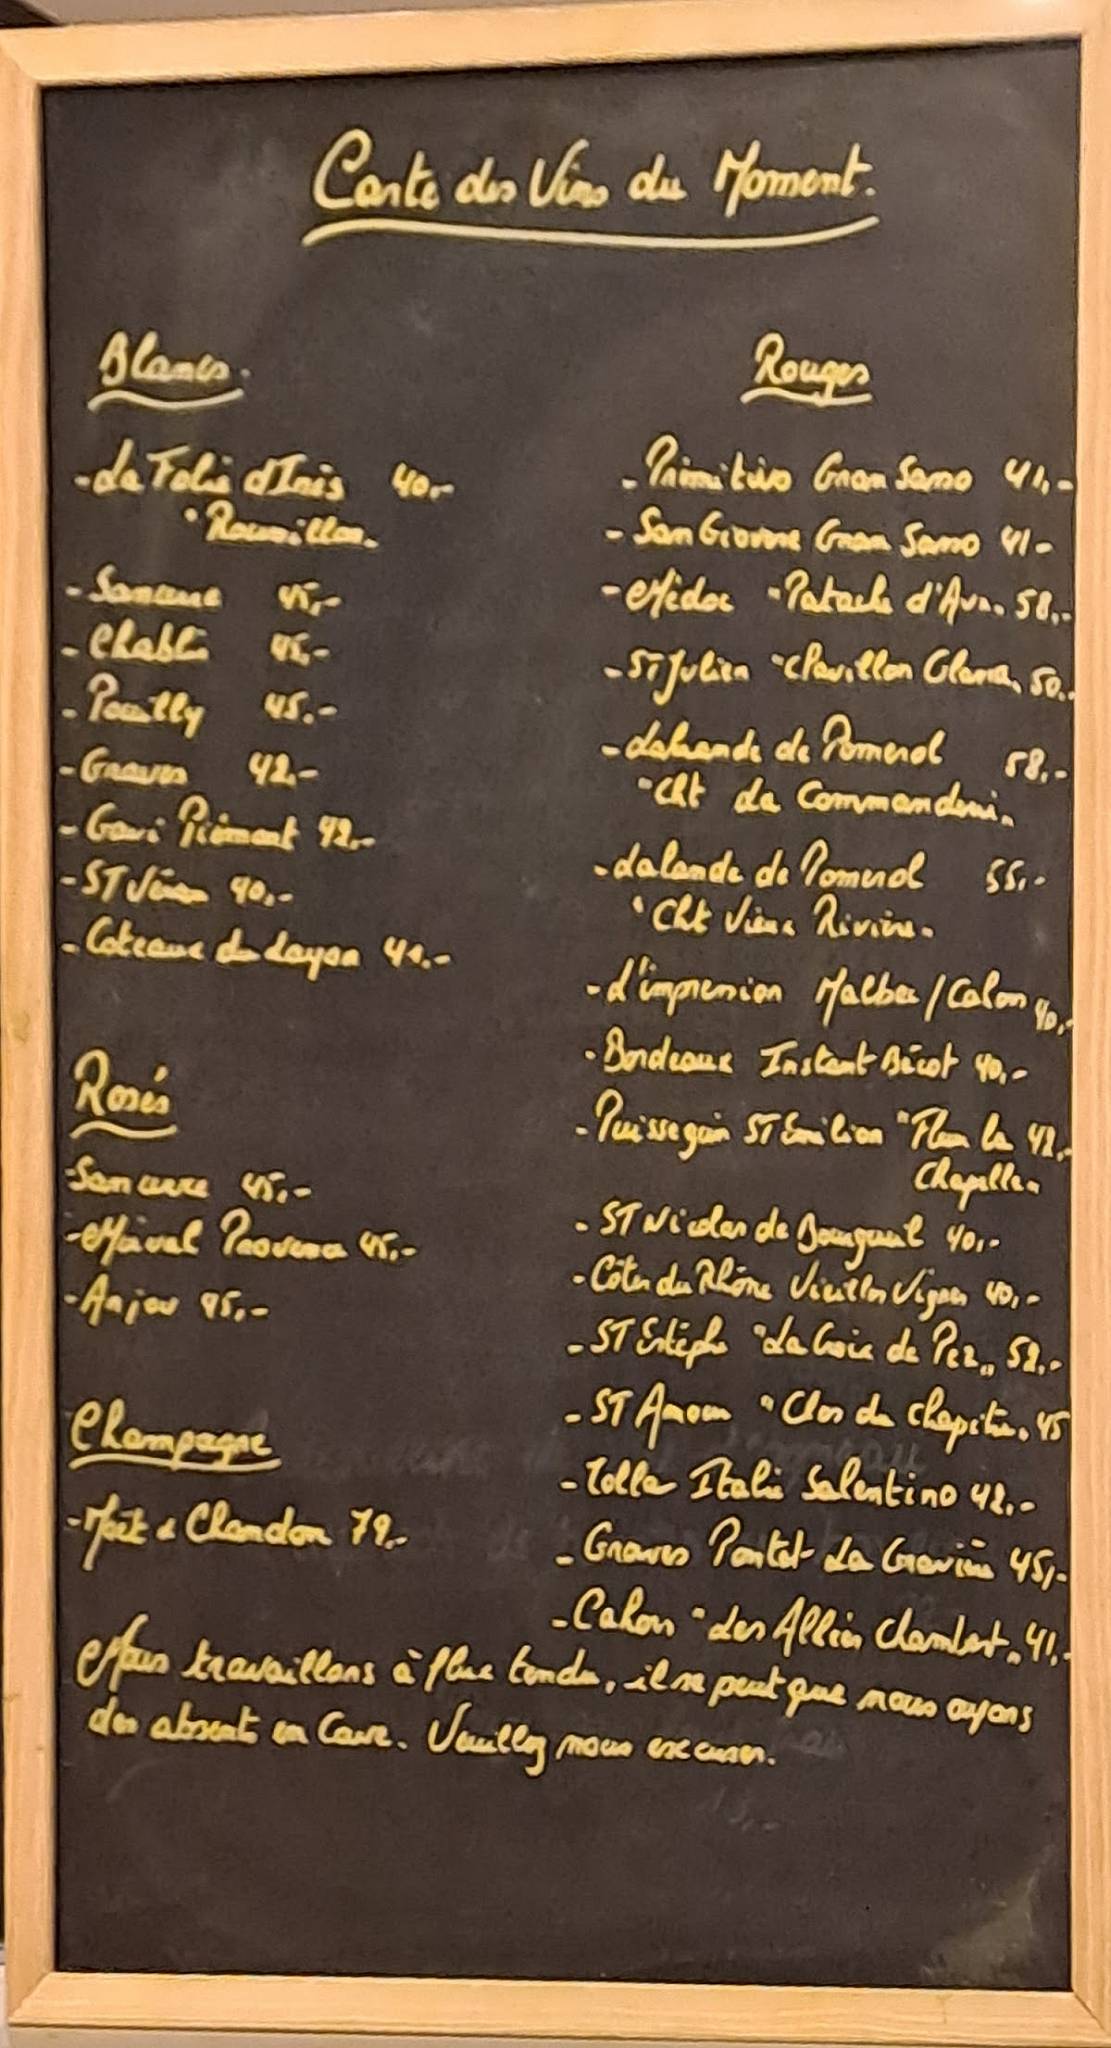 Carte des Vins du Moment.
Blancs.
- La Folie d'Inès 40.-
"Roussillon"
- Sancerre 45,-
- Chablis 45,-
- Pouilly 45.-
- Graves 42.-
- Gavi Piémont 42.-
- ST Véran 40,-
- Coteaux du Layon 41.-
Rosés
- Sancerre 45,-
- Miraval Provence 45,-
- Anjou 45,-
Champagne
- Moët & Chandon 79.-
Rouges
- Primitivo Gran Sasso 41,-
- SanGiovese Gran Sasso 41-
- Médoc "Patache d'Aux" 58,-
- ST Julien "Pavillon Glana" 50.-
- Lalande de Pomerol 58,-
"Cht La Commanderie"
- Lalande de Pomerol 55,-
"Cht Vieux Rivière"
- L'impression Malbec / Cahors 40,-
- Bordeaux Instant Bécot 40,-
- Puisseguin ST Emilion "Fleur la 42.-
Chapelle"
- ST Nicolas de Bourgueil 40,-
- Côtes du Rhône Vieilles Vignes 40,-
- ST Estèphe "La Croix de Pez" 52.-
- ST Amour "Clos du Chapitre" 45
- Italie Salentino 42.-
- Graves Pontet La Gravière 45,-
- Cahors "Les Allées Chambert" 41,-
Nous travaillons à flux tendu, il se peut que nous ayons
des absents en Cave. Veuillez nous excuser.